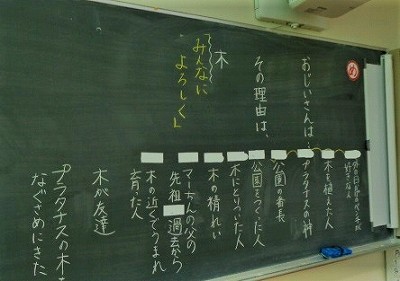 め
おじいさんは、
その理由は、
木
「みんなに
よろしく」
好きな人
木を植えた人
プラタナスの神
公園の番長
公園をつくった人
木にとりついた人
木の精れい
マーちんの父の
先祖 過去から
木の近くでうまれ
育った人
木が友達
プラタナスの木を
なぐさめにきた